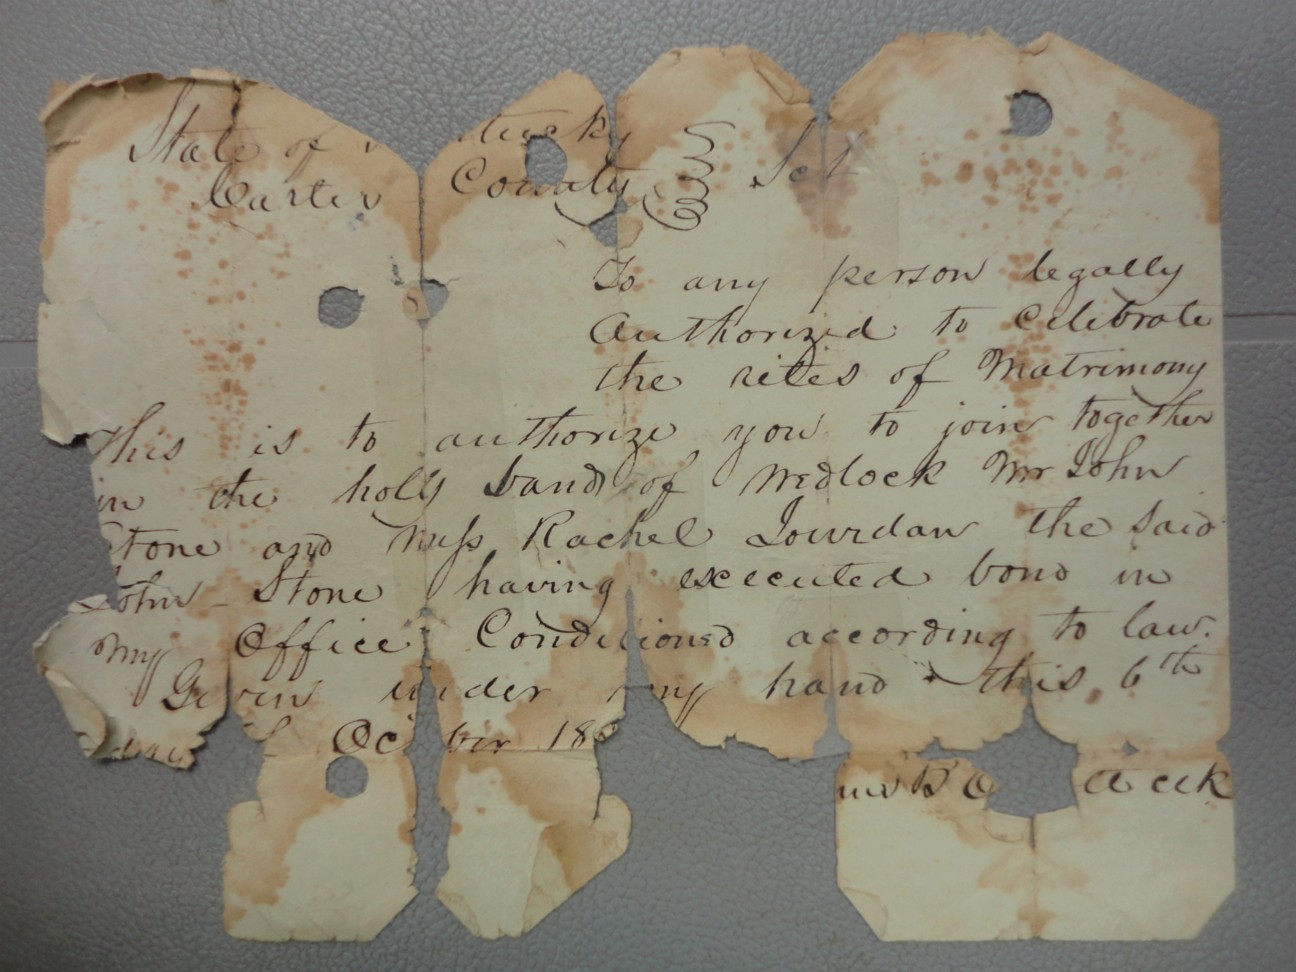 State of tucky
Carter County Sct
To any person legally
Authorized to Celebrate
the rites of Matrimony
This is to authorize you to join together
in the holy band of Wedlock Mr John
Stone and Miss Rachel Jourdan the Said
John Stone having executed bond in
my Office Conditioned according to law.
Given under my hand this 6th
day Oc ber 18
B O